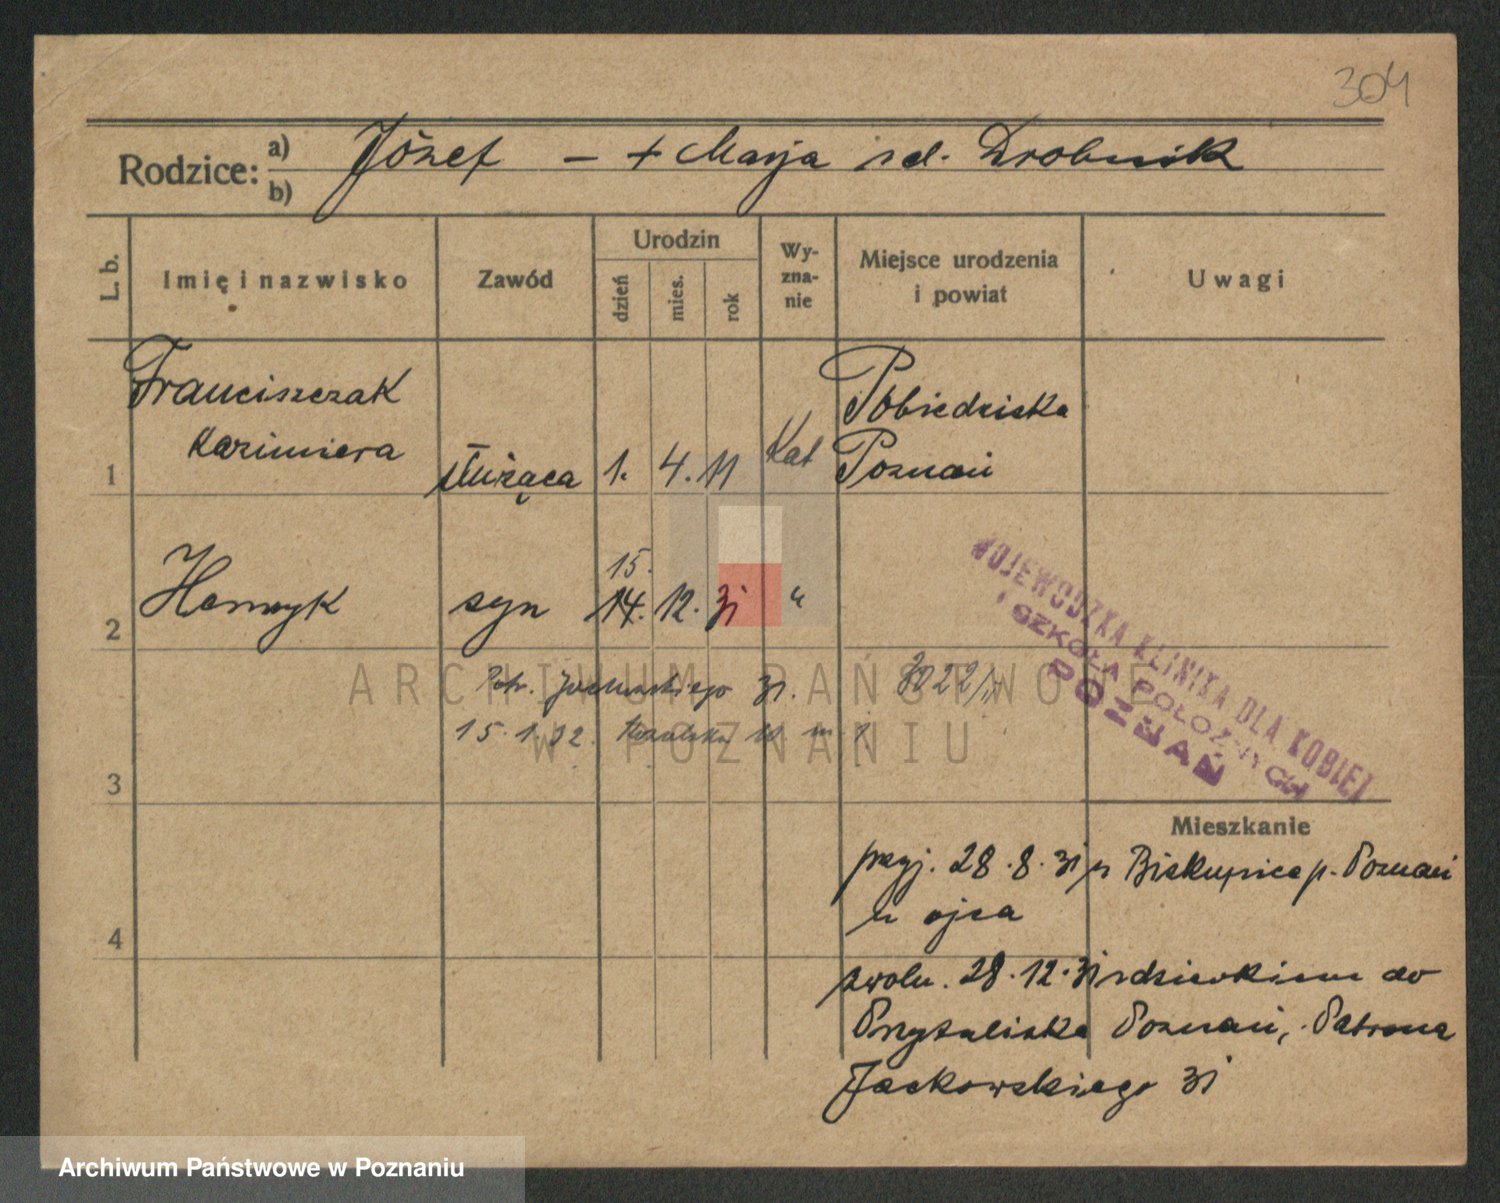 304
Rodzice: a) Józef – + Marja zd. Drobnik
b)
L. b.
Imię i nazwisko
Zawód
Urodzin
dzień
mies.
rok
Wy-
zna-
nie
Miejsce urodzenia
i powiat
Uwagi
Franciszczak
Kazimiera
Pobiedziska
1 służąca 1. 4. 11 Kat Poznań
15.
2 Henryk syn 14. 12. 31 "
WOJEWÓDZKA KLINIKA DLA KOBIET
I SZKOŁA POŁOŻNYCH
POZNAŃ
Patr. Jackowskiego 31. 3022/
15.1.32
3
Mieszkanie
przyj. 28.8.31 z Biskupice p. Poznań
u ojca
4
zwoln. 28.12.31 z dzieckiem do
Przytuliska Poznań, Patrona
Jackowskiego 31
ARCHIWUM PAŃSTWOWE
W POZNANIU
Archiwum Państwowe w Poznaniu